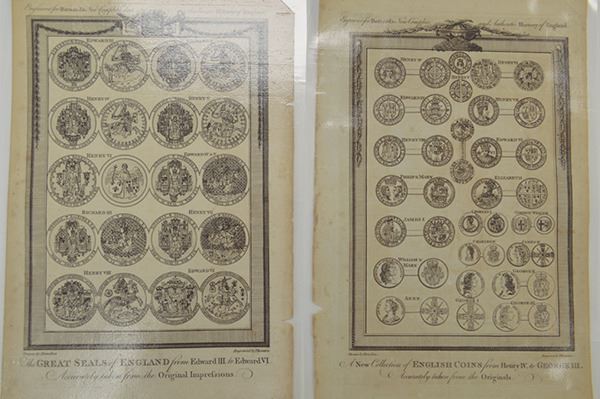 Engraved for Barnard's New Complete
EDWARD III.
HENRY IV. HENRY V.
HENRY VI. EDWARD IV.
RICHARD III. HENRY VII.
HENRY VIII. EDWARD VI.
The GREAT SEALS of ENGLAND from Edward III. to Edward VI.
Accurately taken from the Original Impressions.
Engraved for Barnard's New Complete & Authentic History of England.
HENRY IV. HENRY V.
EDWARD IV. HENRY VII.
HENRY VIII. EDWARD VI.
PHILIP & MARY ELIZABETH
JAMES I.
CHARLES II. JAMES II.
WILLIAM & MARY
ANNE
GEORGE I.
GEORGE II.
A New Collection of ENGLISH COINS from Henry IV. to GEORGE III.
Accurately taken from the Originals.